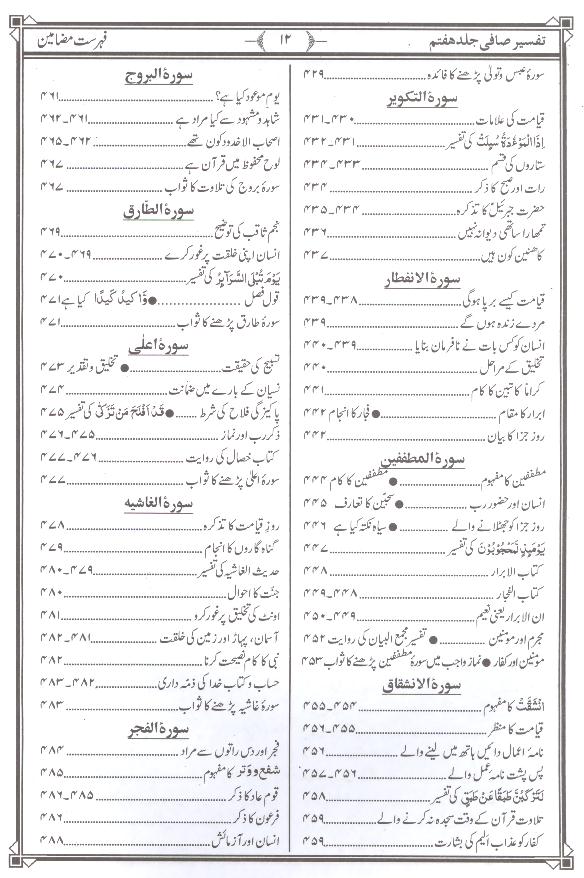 تفسیر صافی جلد ہفتم ۱۲ فہرست مضامین
سورۂ عبس و تولّیٰ پڑھنے کا فائدہ ۴۲۹
سورۃ التکویر
قیامت کی علامات ۴۳۰۔۴۳۱
اِذَا الْمَوْءٗدَۃُ سُئِلَتْ کی تفسیر ۴۳۱۔۴۳۲
ستاروں کی قسم ۴۳۳۔۴۳۴
رات اور صبح کا ذکر ۴۳۴
حضرت جبرئیل کا تذکرہ ۴۳۴۔۴۳۵
تمھارا ساتھی دیوانہ نہیں ۴۳۶
کاھنین کون ہیں ۴۳۷
سورۃ الانفطار
قیامت کیسے برپا ہوگی ۴۳۸۔۴۳۹
مردے زندہ ہوں گے ۴۳۹
انسان کو کس بات نے نافرمان بنایا ۴۳۹۔۴۴۰
تخلیق کے مراحل ۴۴۰
کراماً کاتبین کا کام ۴۴۱
ابرار کا مقام ● فجار کا انجام ۴۴۲
روز جزا کا بیان ۴۴۲
سورۃ المطففین
مطففین کا مفہوم ● مطففین کا کام ۴۴۴
انسان اور حضورِ رب ● سجّین کا تعارف ۴۴۵
روز جزا کو جھٹلانے والے ● سیاہ نکتہ کیا ہے ۴۴۶
یَوْمَئِذٍ لَّمَحْجُوْبُوْنَ کی تفسیر ۴۴۷
کتاب الابرار ۴۴۸
کتاب الفجار ۴۴۸۔۴۴۹
ان الابرار یعنی نعیم ۴۴۹۔۴۵۰
مجرم اور مومنین ● تفسیر مجمع البیان کی روایت ۴۵۲
مومنین اور کفار ● نماز واجب میں سورۂ مطففین پڑھنے کا ثواب ۴۵۳
سورۃ الانشقاق
انْشَقَّتْ کا مفہوم ۴۵۴۔۴۵۵
قیامت کا منظر ۴۵۵۔۴۵۶
نامۂ اعمال دائیں ہاتھ میں لینے والے ۴۵۶
پس پشت نامۂ عمل والے ۴۵۶۔۴۵۷
لَتَرْکَبُنَّ طَبَقًا عَنْ طَبَقٍ کی تفسیر ۴۵۸
تلاوت قرآن کے وقت سجدہ نہ کرنے والے ۴۵۹
کفار کو عذاب الیم کی بشارت ۴۵۹
سورۃ البروج
یوم موعود کیا ہے؟ ۴۶۱
شاہد و مشہود سے کیا مراد ہے ۴۶۱۔۴۶۲
اصحاب الاخدود کون تھے ۴۶۲۔۴۶۵
لوح محفوظ میں قرآن ہے ۴۶۷
سورۂ بروج کی تلاوت کا ثواب ۴۶۷
سورۃ الطّارق
نجم ثاقب کی توضیح ۴۶۹
انسان اپنی خلقت پر غور کرے ۴۶۹۔۴۷۰
یَوْمَ تُبْلَی السَّرَآئِرُ کی تفسیر ۴۷۰
قول فصل ● وَّاَکِیْدُ کَیْدًا کیا ہے ۴۷۱
سورۂ طارق پڑھنے کا ثواب ۴۷۱
سورۂ اعلٰی
تسبیح کی حقیقت ● تخلیق و تقدیر ۴۷۳
نسیان کے بارے میں ضمانت ۴۷۴
پاکیزگی فلاح کی شرط ● قَدْ اَفْلَحَ مَنْ تَزَکّٰی کی تفسیر ۴۷۵
ذکر رب اور نماز ۴۷۵۔۴۷۶
کتاب خصال کی روایت ۴۷۶۔۴۷۷
سورۂ اعلیٰ پڑھنے کا ثواب ۴۷۷
سورۃ الغاشیہ
روز قیامت کا تذکرہ ۴۷۸
گناہ گاروں کا انجام ۴۷۹
حدیث الغاشیہ کی تفسیر ۴۷۹۔۴۸۰
جنّت کا احوال ۴۸۰
اونٹ کی تخلیق پر غور کرو ۴۸۱
آسمان، پہاڑ اور زمین کی خلقت ۴۸۱۔۴۸۲
نبی کا کام نصیحت کرنا ۴۸۲
حساب و کتاب خدا کی ذمہ داری ۴۸۲۔۴۸۳
سورۂ غاشیہ پڑھنے کا ثواب ۴۸۳
سورۃ الفجر
فجر اور دس راتوں سے مراد ۴۸۴
شفع و وتر کا مفہوم ۴۸۵
قوم عاد کا ذکر ۴۸۵۔۴۸۶
فرعون کا ذکر ۴۸۶
انسان اور آزمائش ۴۸۸